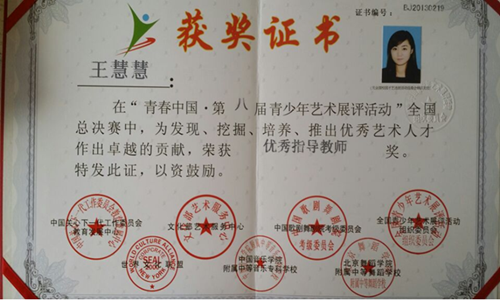 证书编号：
获奖证书
王慧慧：
在“青春中国·第八届青少年艺术展评活动”全国
总决赛中，为发现、挖掘、培养、推出优秀艺术人才
作出卓越的贡献，荣获 优秀指导教师 奖。
特发此证，以资鼓励。
中国关心下一代工作委员会 文化部艺术服务中心 中国歌剧舞剧院考级委员会 全国青少年艺术展评活动
教育发展中心 考级委员会 组织委员会
世界文化联盟 中国音乐学院 北京舞蹈学院
附属中等音乐专科学校 附属中等舞蹈学校
WORLD CULTURE ALLIANCE
SEAL
NEW YORK